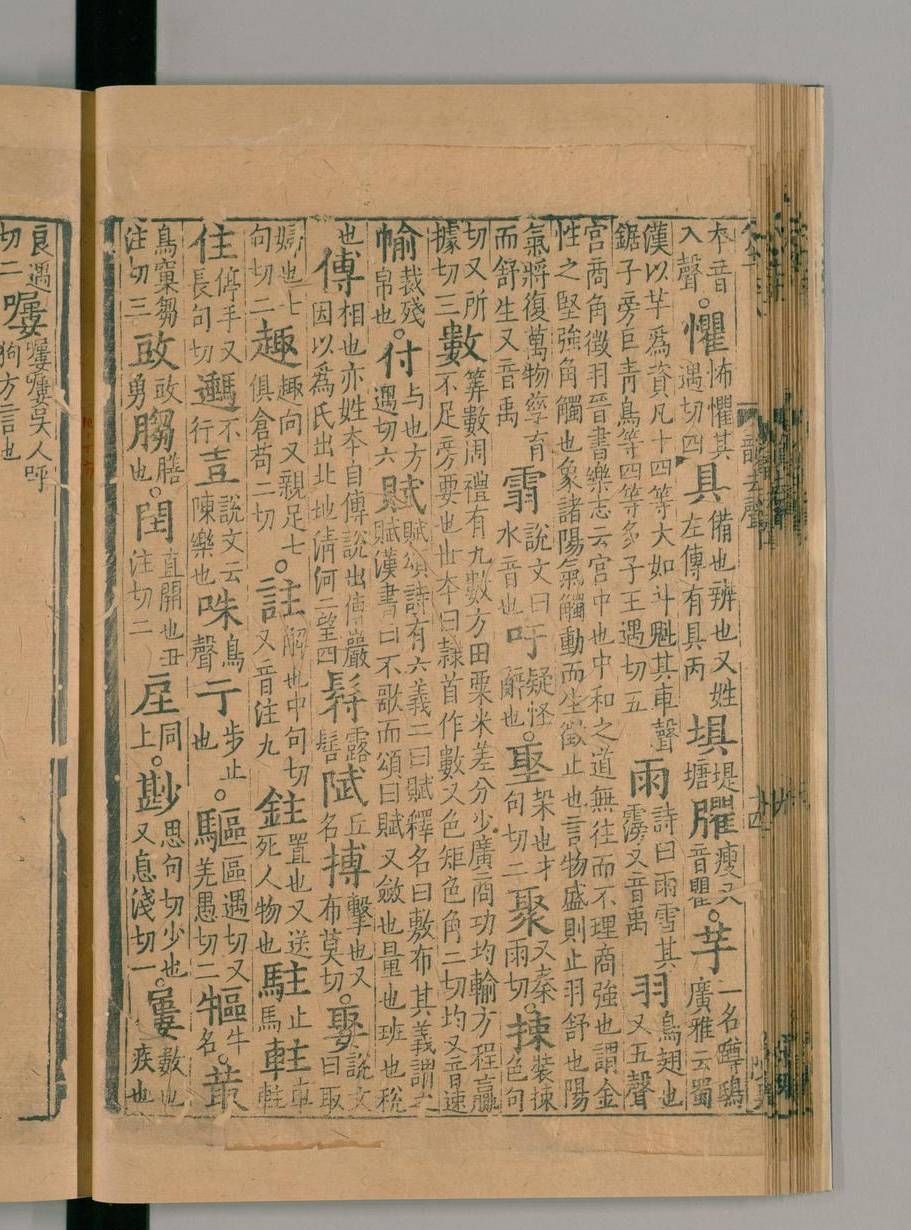 本音入聲。懼怖懼其遇切四具備也辨也又姓左傳有具丙埧堤塘臞瘦又音瞿。芋一名蹲鴟廣雅云蜀
漢以芋爲資凡十四等大如斗魁其車聲鋸子旁巨青鳥等四等多子王遇切五雨詩曰雨雪其霶又音禹羽鳥翅也又五聲
宮商角徵羽晉書樂志云宮中也中和之道無往而不理商強也謂金性之堅強角觸也象諸陽氣觸動而生徵止也言物盛則止羽舒也陽
氣將復萬物孳育而舒生又音禹雩說文曰水音也吁疑怪辭也。埾架也才句切二聚又秦雨切。捒裝捒色句
切又所據切三數筭數周禮有九數方田粟米差分少廣商功均輸方程贏不足旁要也世本曰隸首作數又色矩色角二切又音速
㡏裁殘帛也。付与也方遇切六賦賦頌詩有六義二曰賦釋名曰敷布其義謂之賦漢書曰不歌而頌曰賦又斂也量也班也稅
也傅相也亦姓本自傅說出傅巖因以爲氏出北地清河二望四露髻丘名搏擊也又布莫切。娶說文曰取
婦也七句切二趣趣向又親足七俱倉苟二切。註解也中句切又音注九鉒置也又送死人物也駐止馬軴車軴
住停手又長句切不行壴說文云陳樂也咮鳥聲亍步止也。驅區遇切又羌愚切二牛名。菆
鳥窠芻注切三勇膳也。直開也丑注切二同上。尠思句切少也又息淺切一。屢數也疾也
良遇切二嘍嘍吳人呼狗方言也